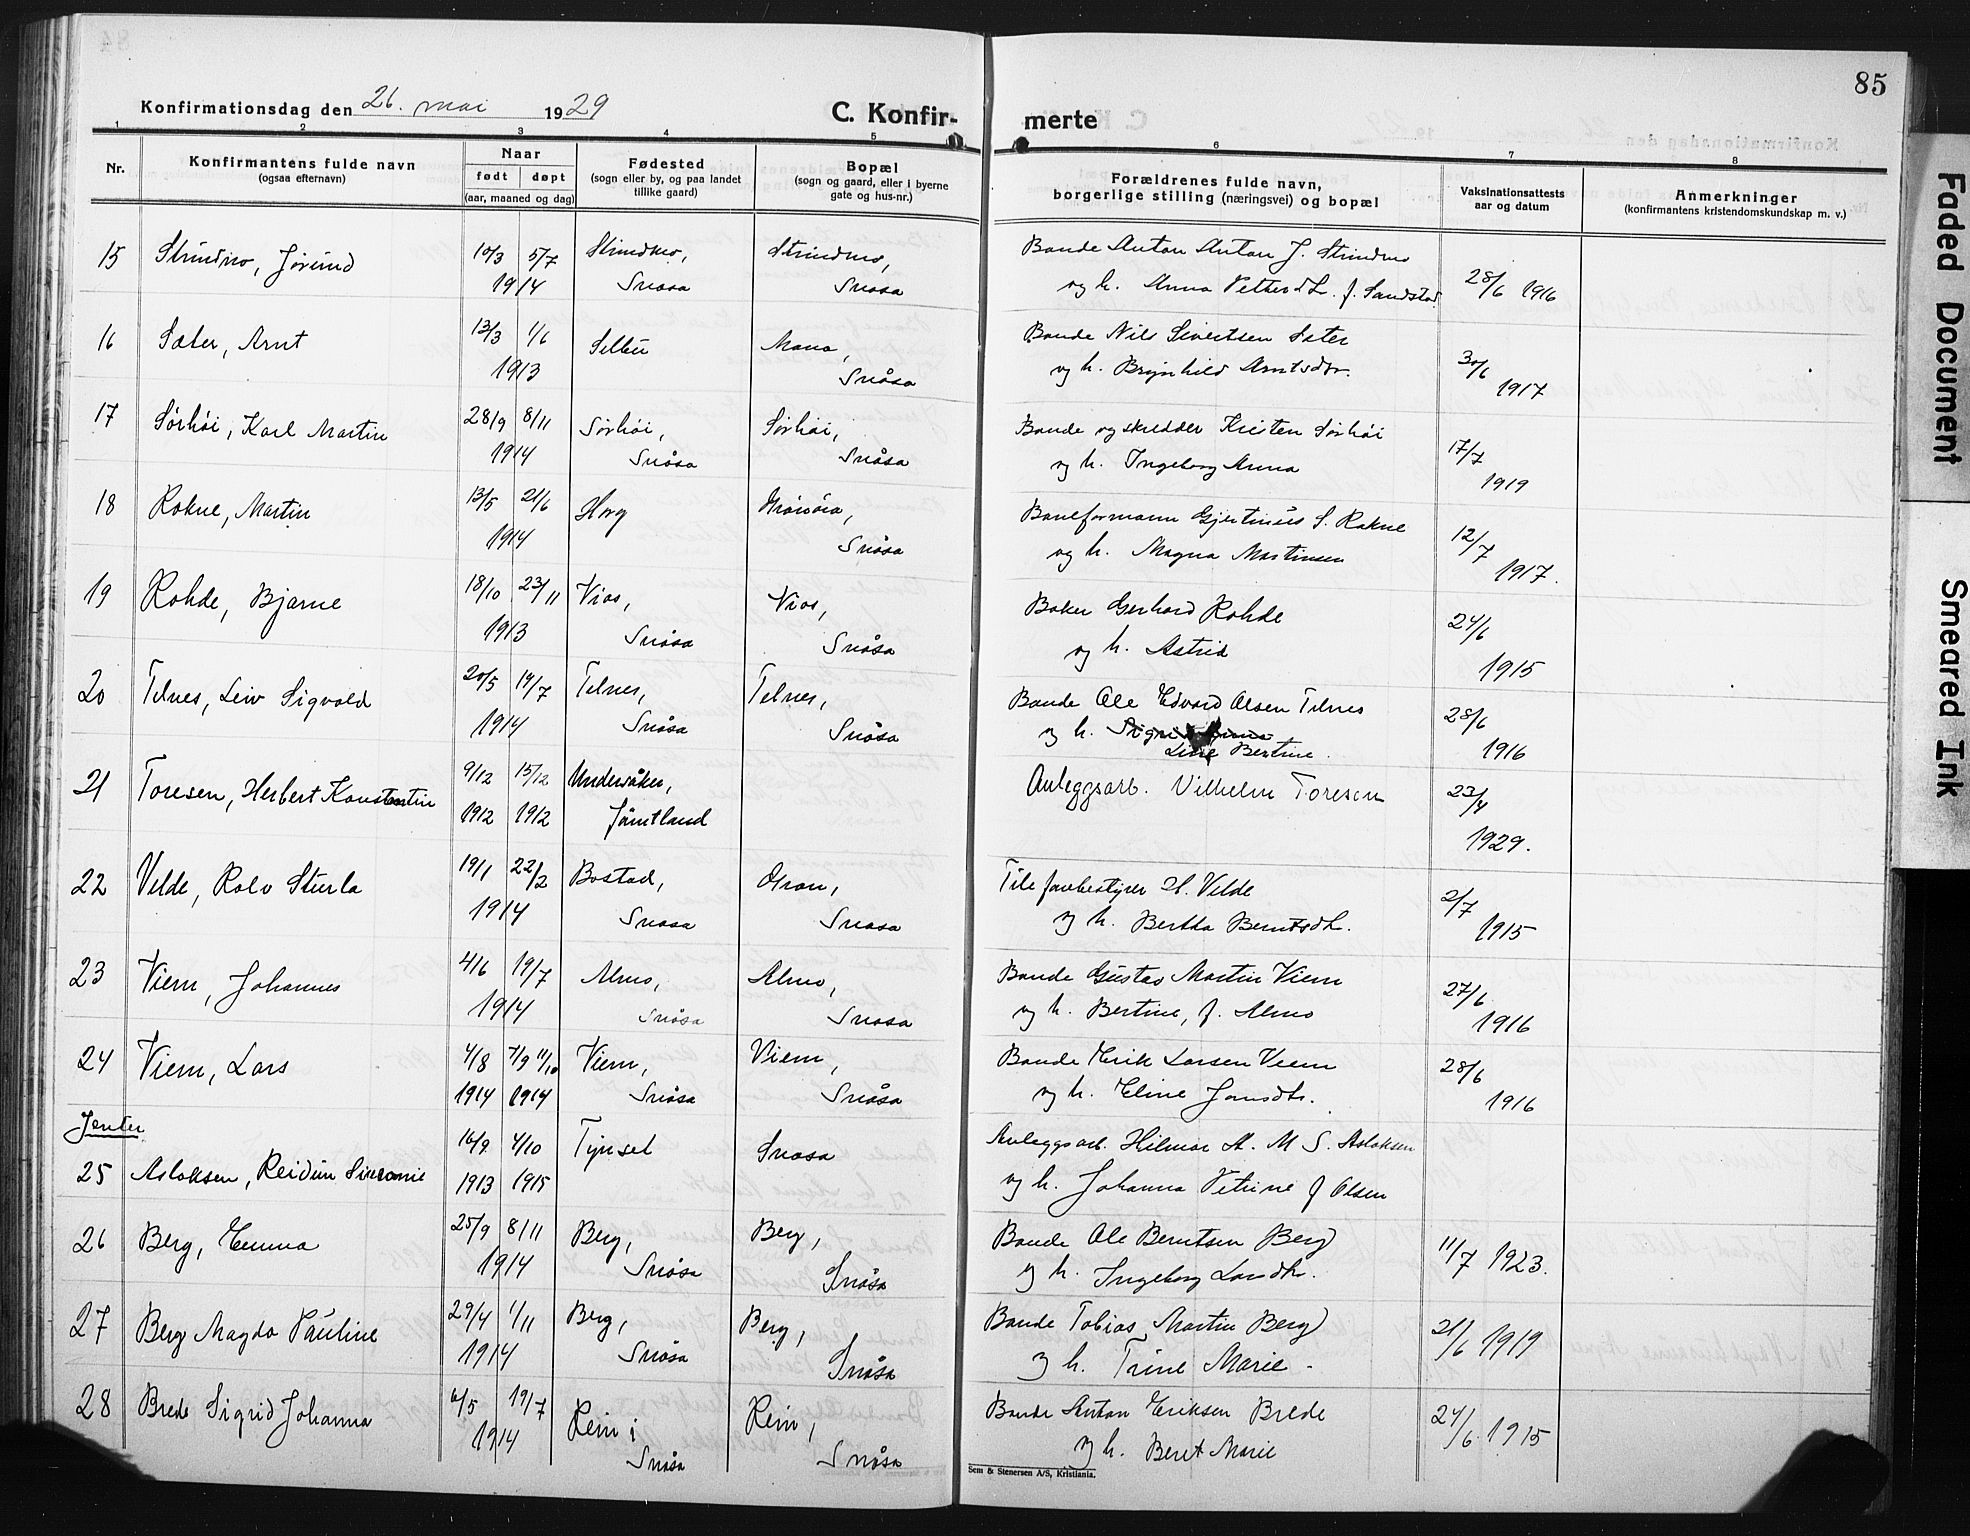 85
Konfirmationsdag den 26. mai 1929
C. Konfir-
merte
1 2 3 4 5 6 7 8
Nr.
Konfirmantens fulde navn
(ogsaa efternavn)
Naar
født døpt
(aar, maaned og dag)
Fødested
(sogn eller by, og paa landet
tillike gaard)
Bopæl
(sogn og gaard, eller i byerne
gate og hus-nr.)
Forældrenes fulde navn,
borgerlige stilling (næringsvei) og bopæl
Vaksinationsattests
aar og datum
Anmerkninger
(konfirmantens kristendomskundskap m. v.)
15 Strindmo, Jørund 10/3 5/7 Strindmo, Strindmo, Bonde Anton Anton J. Strindmo
1914 Snåsa Snåsa og h. Anna Pettersdtr. f. Sandstad 28/6 1916
16 Sæter, Arnt 13/3 1/6 Selbu Mona, Bonde Nils Sivertsen Sæter 30/6
1913 Snåsa og h. Brynhild Arntsdtr. 1917
17 Sørhøi, Karl Martin 28/9 8/11 Sørhøi, Sørhøi, Bonde og skredder Kristen Sørhøi 17/7
1914 Snåsa Snåsa og h. Ingeborg Anna 1919
18 Rokne, Martin 13/5 21/6 Horg Baneformann Gjertinius S. Rokne 12/7
1914 Snåsa og h. Magna Martinsen 1917.
19 Rohde, Bjarne 18/10 23/11 Vios, Vios, Baker Gerhard Rohde 24/6
1913 Snåsa Snåsa og h. Astrid 1915
20 Tilnes, Leiv Sigvald 20/5 19/7 Tilnes, Tilnes, Bonde Ole Edvard Olsen Tilnes 28/6
1914 Snåsa Snåsa og h. 1916
Line Bertine.
21 Toresen, Herbert Konstantin 9/12 15/12 Undersåker, Anleggsarb. Vilhelm Toresen 23/4
1912 1912 Jämtland 1929.
22 Velde, Rolv Sturla 19/1 22/2 Bostad, Gran, Telefonbestyrer H. Velde 2/7
1914 Snåsa Snåsa og h. Bertha Berntsdtr. 1915
23 Viem, Johannes 4/6 19/7 Almo, Almo, Bonde Gustav Martin Viem 27/6
1914 Snåsa Snåsa og h. Bertine, f. Almo 1916
24 Viem, Lars 4/8 7/9 11/10 Viem, Viem, Bonde Erik Larsen Viem 28/6
1914 1914 Snåsa Snåsa og h. Eline Jonsdtr. 1916
Jenter
25 Aslaksen, Reidun 16/9 4/10 Tynset Snåsa Anleggsarb. Hilmar A. M. S. Aslaksen
1913 1915 og h. Johanna Petrine f Olsen
26 Berg, Emma 25/9 8/11 Berg, Berg, Bonde Ole Berntsen Berg 11/7 1923.
1914 Snåsa Snåsa og h. Ingeborg Larsdtr.
27 Berg Magda Pauline 29/4 1/11 Berg, Berg, Bonde Tobias Martin Berg 21/6 1919
1914 Snåsa Snåsa og h. Trine Marie.
28 Brede Sigrid Johanna 6/5 19/7 Rein i Rein, Bonde Anton Eriksen Brede 24/6 1915
1914 Snåsa Snåsa og h. Beret Marie
Sem & Stenersen A/S, Kristiania.
Faded Document
Smeared Ink